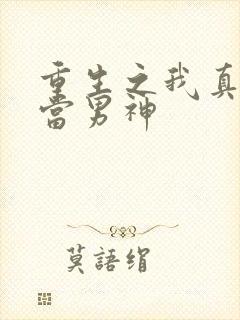 重生之我真
当男神
莫語絹